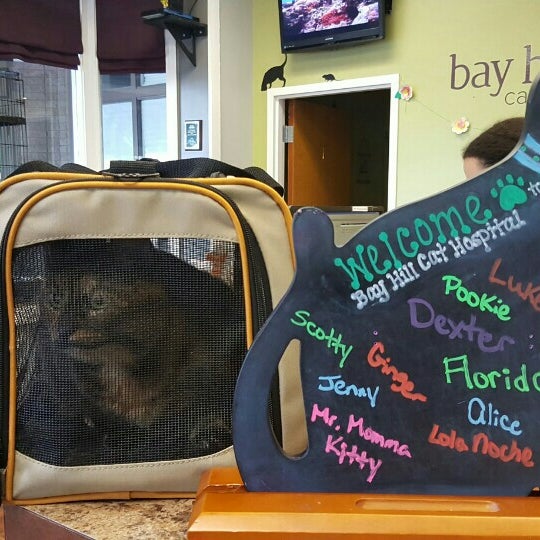 bay h
ca
Welcome to
Bay Hill Cat Hospital
Luke
Pookie
Dexter
Scotty
Ginger
Florido
Jenny
Alice
Mr. Momma
Kitty
Lola Noche